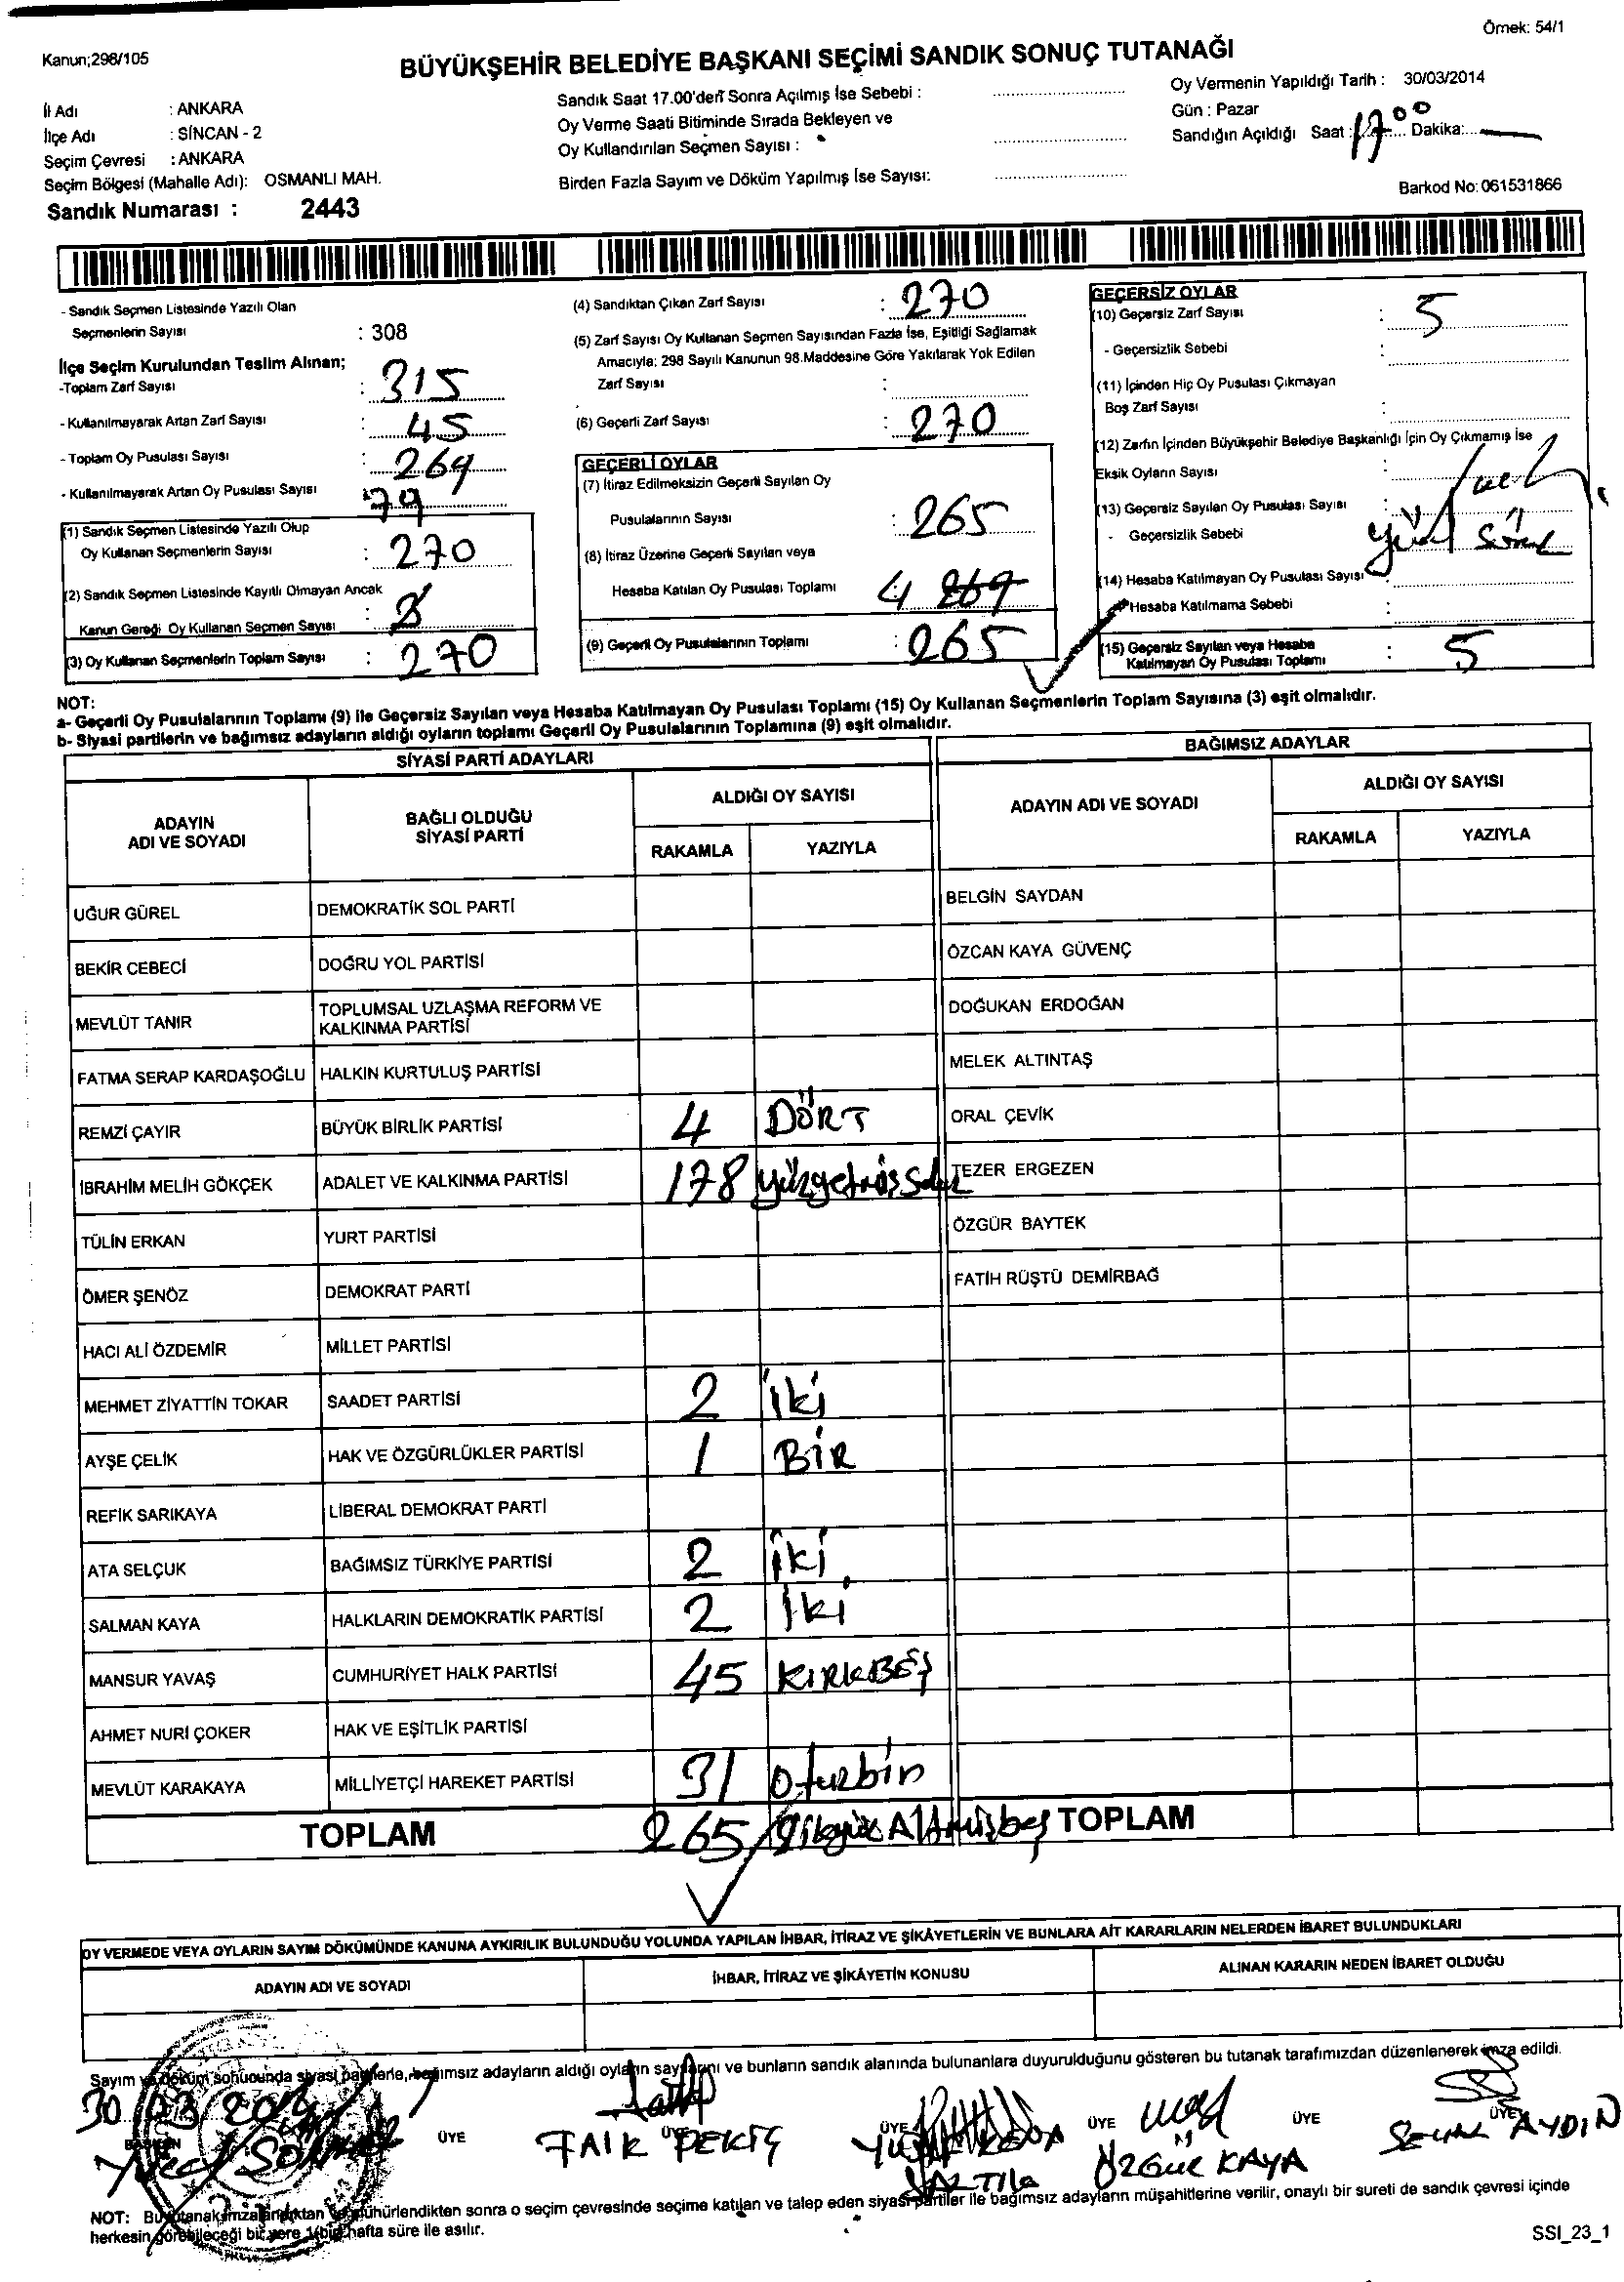 Örnek: 54/1
Kanun;298/105
BÜYÜKŞEHİR BELEDİYE BAŞKANI SEÇİMİ SANDIK SONUÇ TUTANAĞI
İl Adı : ANKARA
İlçe Adı : SİNCAN - 2
Seçim Çevresi : ANKARA
Seçim Bölgesi (Mahalle Adı): OSMANLI MAH.
Sandık Numarası : 2443
Sandık Saat 17.00'den Sonra Açılmış İse Sebebi :
Oy Verme Saati Bitiminde Sırada Bekleyen ve
Oy Kullandırılan Seçmen Sayısı :
Birden Fazla Sayım ve Döküm Yapılmış İse Sayısı:
Oy Vermenin Yapıldığı Tarih : 30/03/2014
Gün : Pazar
Sandığın Açıldığı Saat : 17 00 Dakika:
Barkod No: 061531866
- Sandık Seçmen Listesinde Yazılı Olan
Seçmenlerin Sayısı : 308
İlçe Seçim Kurulundan Teslim Alınan;
-Toplam Zarf Sayısı : 315
- Kullanılmayarak Artan Zarf Sayısı : 45
- Toplam Oy Pusulası Sayısı : 269
- Kullanılmayarak Artan Oy Pusulası Sayısı : 79
(1) Sandık Seçmen Listesinde Yazılı Olup
Oy Kullanan Seçmenlerin Sayısı : 270
(2) Sandık Seçmen Listesinde Kayıtlı Olmayan Ancak
Kanun Gereği Oy Kullanan Seçmen Sayısı :
(3) Oy Kullanan Seçmenlerin Toplam Sayısı : 270
(4) Sandıktan Çıkan Zarf Sayısı : 270
(5) Zarf Sayısı Oy Kullanan Seçmen Sayısından Fazla İse, Eşitliği Sağlamak
Amacıyla; 298 Sayılı Kanunun 98.Maddesine Göre Yakılarak Yok Edilen
Zarf Sayısı :
(6) Geçerli Zarf Sayısı : 270
GEÇERLİ OYLAR
(7) İtiraz Edilmeksizin Geçerli Sayılan Oy
Pusulalarının Sayısı : 265
(8) İtiraz Üzerine Geçerli Sayılan veya
Hesaba Katılan Oy Pusulası Toplamı : 4 269
(9) Geçerli Oy Pusulalarının Toplamı : 265
GEÇERSİZ OYLAR
(10) Geçersiz Zarf Sayısı : 5
- Geçersizlik Sebebi :
(11) İçinden Hiç Oy Pusulası Çıkmayan
Boş Zarf Sayısı :
(12) Zarfın İçinden Büyükşehir Belediye Başkanlığı İçin Oy Çıkmamış İse
Eksik Oyların Sayısı :
(13) Geçersiz Sayılan Oy Pusulası Sayısı :
- Geçersizlik Sebebi
(14) Hesaba Katılmayan Oy Pusulası Sayısı
Hesaba Katılmama Sebebi :
(15) Geçersiz Sayılan veya Hesaba
Katılmayan Oy Pusulası Toplamı : 5
NOT:
a- Geçerli Oy Pusulalarının Toplamı (9) ile Geçersiz Sayılan veya Hesaba Katılmayan Oy Pusulası Toplamı (15) Oy Kullanan Seçmenlerin Toplam Sayısına (3) eşit olmalıdır.
b- Siyasi partilerin ve bağımsız adayların aldığı oyların toplamı Geçerli Oy Pusulalarının Toplamına (9) eşit olmalıdır.
SİYASİ PARTİ ADAYLARI
BAĞIMSIZ ADAYLAR
ADAYIN ADI VE SOYADI
BAĞLI OLDUĞU SİYASİ PARTİ
ALDIĞI OY SAYISI
RAKAMLA YAZIYLA
ADAYIN ADI VE SOYADI
ALDIĞI OY SAYISI
RAKAMLA YAZIYLA
UĞUR GÜREL DEMOKRATİK SOL PARTİ BELGİN SAYDAN
BEKİR CEBECİ DOĞRU YOL PARTİSİ ÖZCAN KAYA GÜVENÇ
MEVLÜT TANIR TOPLUMSAL UZLAŞMA REFORM VE KALKINMA PARTİSİ DOĞUKAN ERDOĞAN
FATMA SERAP KARDAŞOĞLU HALKIN KURTULUŞ PARTİSİ MELEK ALTINTAŞ
REMZİ ÇAYIR BÜYÜK BİRLİK PARTİSİ 4 DÖRT ORAL ÇEVİK
İBRAHİM MELİH GÖKÇEK ADALET VE KALKINMA PARTİSİ 178 TEZER ERGEZEN
TÜLİN ERKAN YURT PARTİSİ ÖZGÜR BAYTEK
ÖMER ŞENÖZ DEMOKRAT PARTİ FATİH RÜŞTÜ DEMİRBAĞ
HACI ALİ ÖZDEMİR MİLLET PARTİSİ
MEHMET ZİYATTİN TOKAR SAADET PARTİSİ 2 iki
AYŞE ÇELİK HAK VE ÖZGÜRLÜKLER PARTİSİ 1 BİR
REFİK SARIKAYA LİBERAL DEMOKRAT PARTİ
ATA SELÇUK BAĞIMSIZ TÜRKİYE PARTİSİ 2 iki
SALMAN KAYA HALKLARIN DEMOKRATİK PARTİSİ 2 iki
MANSUR YAVAŞ CUMHURİYET HALK PARTİSİ 45 KIRKBEŞ
AHMET NURİ ÇOKER HAK VE EŞİTLİK PARTİSİ
MEVLÜT KARAKAYA MİLLİYETÇİ HAREKET PARTİSİ 31 oturbir
TOPLAM 265 TOPLAM
OY VERMEDE VEYA OYLARIN SAYIM DÖKÜMÜNDE KANUNA AYKIRILIK BULUNDUĞU YOLUNDA YAPILAN İHBAR, İTİRAZ VE ŞİKÂYETLERİN VE BUNLARA AİT KARARLARIN NELERDEN İBARET BULUNDUKLARI
ADAYIN ADI VE SOYADI İHBAR, İTİRAZ VE ŞİKÂYETİN KONUSU ALINAN KARARIN NEDEN İBARET OLDUĞU
Sayım ve döküm sonucunda siyasi partilerle, bağımsız adayların aldığı oyların sayılarını ve bunların sandık alanında bulunanlara duyurulduğunu gösteren bu tutanak tarafımızdan düzenlenerek imza edildi.
30/03/2014
BAŞKAN ÜYE ÜYE ÜYE ÜYE ÜYE ÜYE
FAİK PEKTŞ ÖZGÜR KAYA AYDIN
NOT: Bu tutanak imzalandıktan ve mühürlendikten sonra o seçim çevresinde seçime katılan ve talep eden siyasi partiler ile bağımsız adayların müşahitlerine verilir, onaylı bir sureti de sandık çevresi içinde
herkesin görebileceği bir yere 1(bir) hafta süre ile asılır.
SSI_23_1